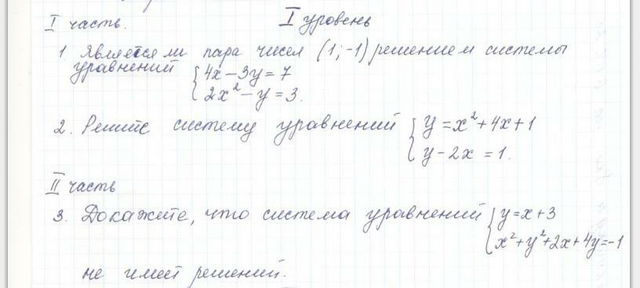 I часть. I уровень
1 Является ли пара чисел (1; -1) решением системы
уравнений { 4x - 3y = 7
2x² - y = 3.
2. Решите систему уравнений { y = x² + 4x + 1
y - 2x = 1.
II часть
3. Докажите, что система уравнений { y = x + 3
x² + y² + 2x + 4y = -1
не имеет решений.